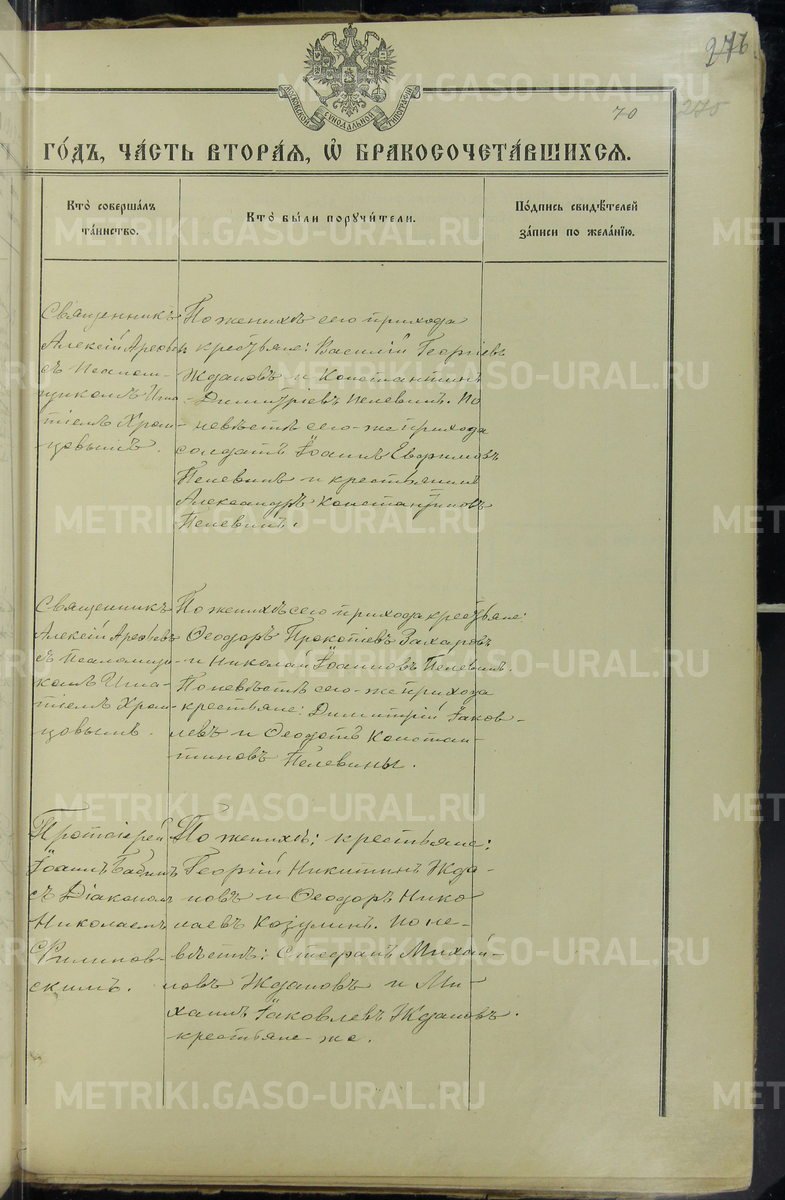 276
70
275
МОСКОВСКОЙ СѴНОДАЛЬНОЙ ТИПОГРАФІИ
ГО́ДЪ, ЧА́СТЬ ВТОРА́Я, Ѡ҆ БРАКОСОЧЕТА́ВШИХСЯ.
Кто̀ соверша́лъ
та́инство.
Кто̀ бы́ли поручи́тели.
По́дпись свидѣ́телей
за́писи по жела́нїю.
Священникъ
Алексій Арефьевъ
съ Псалом-
щикомъ Игна
тіемъ Хром-
цовымъ.
По женихѣ сего прихода
крестьяне: Василій Георгіевъ
Ждановъ и Константинъ
Димитріевъ Пелевинъ. По
невѣстѣ сего-же прихода
солдатъ Іоаннъ Евфимовъ
Пелевинъ и крестьянинъ
Александръ Константиновъ
Пелевинъ.
Священникъ
Алексій Арефьевъ
съ Псаломщи-
комъ Игна-
тіемъ Хром-
цовымъ.
По женихѣ сего прихода крестьяне:
Ѳеодоръ Прокопіевъ Захаровъ
и Николай Іоанновъ Пелевинъ.
По невѣстѣ сего-же прихода
крестьяне: Димитрій Іаков-
левъ и Ѳеодотъ Констан-
тиновъ Пелевины.
Протоіерей
Іоаннъ Бабинъ
съ Діакономъ
Николаемъ
Филинов-
скимъ.
По женихѣ: крестьяне:
Георгій Никитинъ Жда-
новъ и Ѳеодоръ Нико-
лаевъ Козулинъ. По не-
вѣстѣ: Стефанъ Михай-
ловъ Ждановъ и Ми-
хаилъ Іаковлевъ Ждановъ.
крестьяне-же.
METRIKI.GASO-URAL.RU